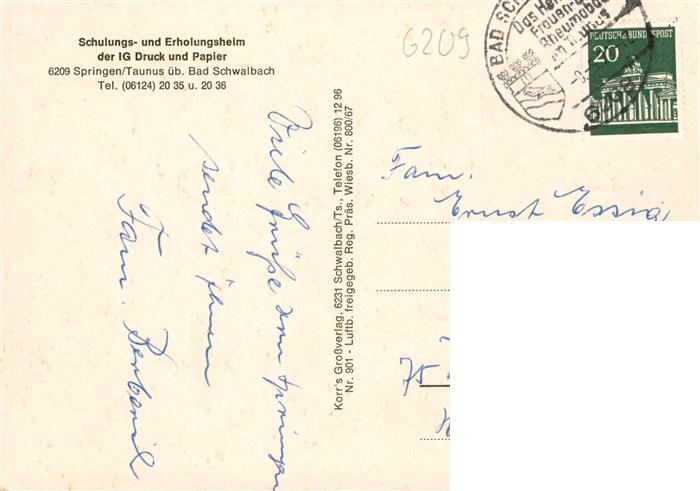 Schulungs- und Erholungsheim
der IG Druck und Papier
6209 Springen/Taunus üb. Bad Schwalbach
Tel. (06124) 20 35 u. 20 36
6209
BAD SC
Das
Frauen-
Rheumabad
im Taunus
DEUTSCHE BUNDESPOST
20
Viele Grüße aus Springen
sendet Ihnen
Fam.
Korr's Großverlag, 6231 Schwalbach/Ts., Telefon (06196) 12 96
Nr. 901 - Luftb. freigegeb. Reg. Präs. Wiesb. Nr. 800/67
Fam.
Ernst Essig
75